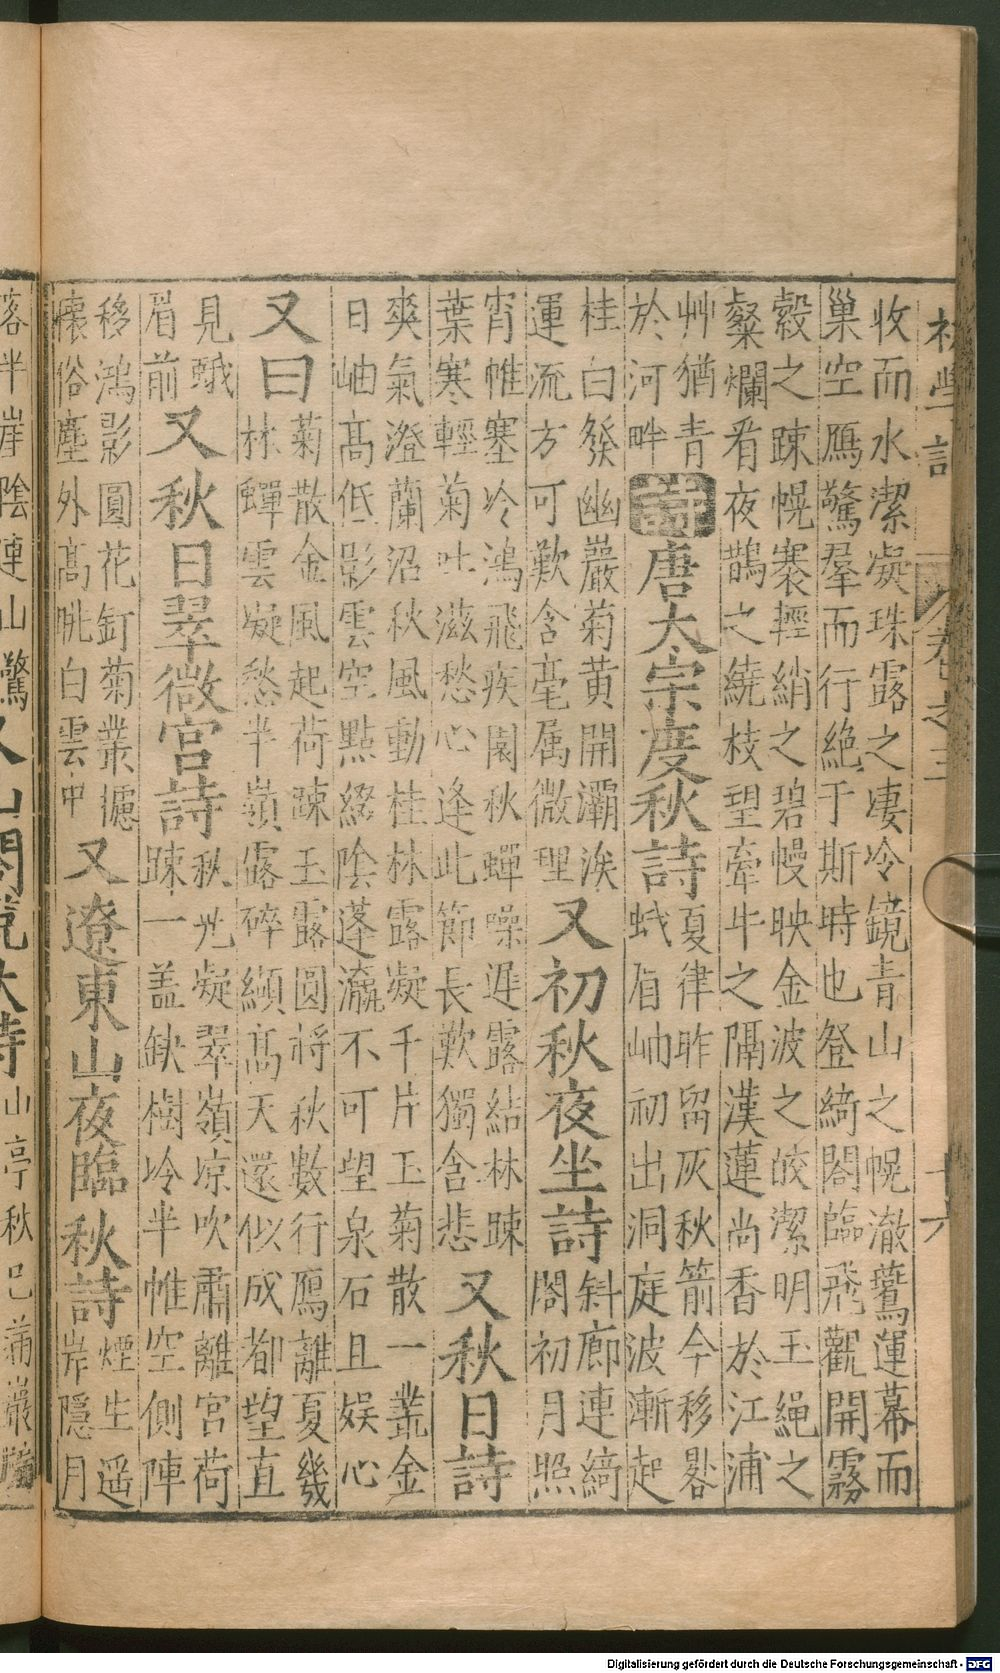 初學記 卷之三 十六
收而水潔凝珠露之凄冷鏡青山之幌澈鶱運幕而
巢空鴈驚羣而行絶于斯時也登綺閣臨飛觀開霧
縠之踈幌褰輕綃之碧幔映金波之皎潔明玉繩之
粲爛看夜鵲之繞枝望牽牛之隔漢蓮尚香於江浦
艸猶青
於河畔
詩 唐太宗度秋詩
夏律昨留灰秋箭今移晷
蛾眉岫初出洞庭波漸起
桂白發幽巖菊黃開灞涘
運流方可歎含毫属微理
又初秋夜坐詩
斜廊連綺
閣初月照
宵帷塞冷鴻飛疾園秋蟬噪遲露結林踈
葉寒輕菊吐滋愁心逢此節長歎獨含悲
又秋日詩
爽氣澄蘭沼秋風動桂林露凝千片玉菊散一叢金
日岫髙低影雲空點綴陰蓬瀛不可望泉石且娱心
又曰
菊散金風起荷踈玉露圓將秋數行鴈離夏幾
林蟬雲凝愁半嶺露碎纈髙天還似成都望直
見蛾
眉前
又秋日翠微宮詩
秋光凝翠嶺凉吹肅離宮荷
踈一盖缺樹冷半帷空側陣
移鴻影圓花釘菊叢攄
懷俗塵外髙眺白雲中
又遼東山夜臨秋詩
煙生遥
岸隱月
落半岸陰連山驚
又山閣晚秋詩
山亭秋已满巖牖
Digitalisierung gefördert durch die Deutsche Forschungsgemeinschaft - DFG